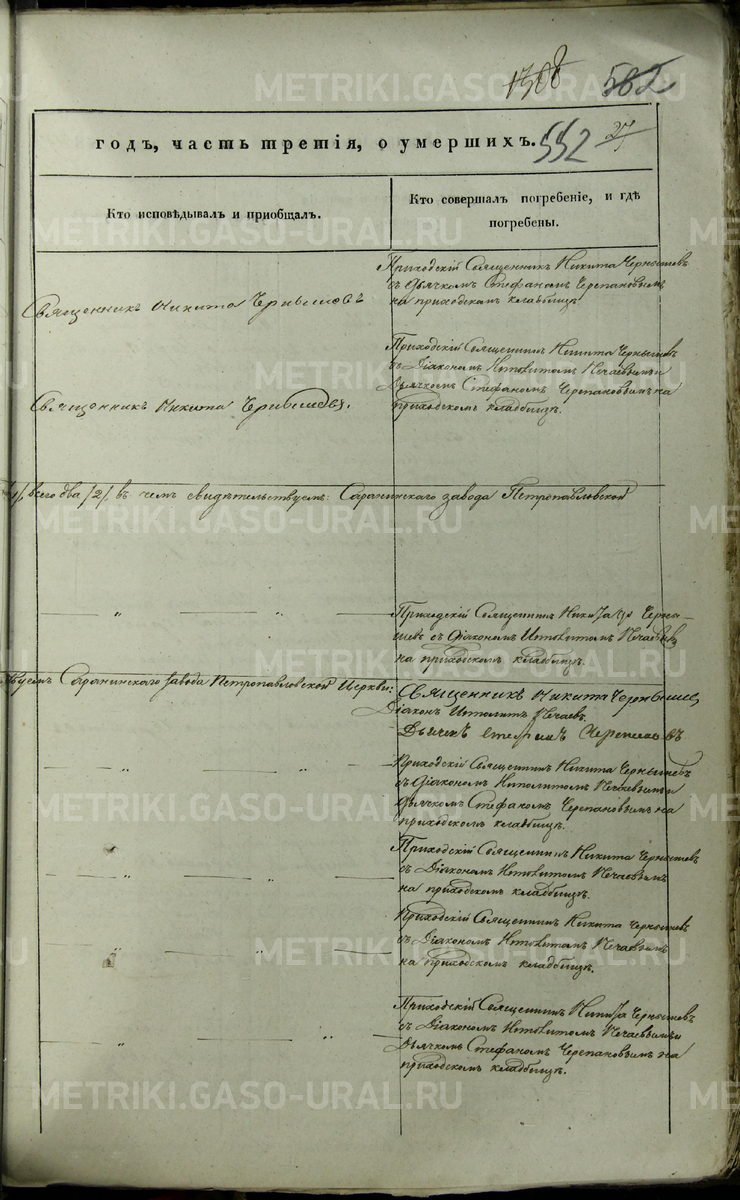 1308 582
годъ, часть третія, о умершихъ. 552 27
Кто исповѣдывалъ и пріобщалъ.
Кто совершалъ погребеніе, и гдѣ
погребены.
Приходскій Священникъ Никита Чернышевъ
съ Дьячкомъ Стефаномъ Черепановымъ
на приходскомъ кладбищѣ
Священникъ Никита Чернышевъ
Приходскій Священникъ Никита Чернышевъ
съ Діакономъ Иполитомъ Нечаевымъ и
Дьячкомъ Стефаномъ Черепановымъ на
приходскомъ кладбищѣ.
Священникъ Никита Чернышевъ.
всего два /2/ въ чемъ свидѣтельствуемъ: Саранинскаго завода Петропавловской
Приходскій Священникъ Никита Черны-
шевъ съ Діакономъ Иполитомъ Нечаевымъ
на приходскомъ кладбищѣ.
Саранинскаго завода Петропавловской Церкви:
Священникъ Никита Чернышев
Діаконъ Иполитъ Нечаевъ.
Дьячекъ Стефанъ Черепановъ
Приходскій Священникъ Никита Чернышевъ
съ Діакономъ Иполитомъ Нечаевымъ и
Дьячкомъ Стефаномъ Черепановымъ на
приходскомъ кладбищѣ.
Приходскій Священникъ Никита Чернышевъ
съ Діакономъ Иполитомъ Нечаевымъ
на приходскомъ кладбищѣ.
Приходскій Священникъ Никита Чернышевъ
съ Діакономъ Иполитомъ Нечаевымъ
на приходскомъ кладбищѣ.
Приходскій Священникъ Никита Чернышевъ
съ Діакономъ Иполитомъ Нечаевымъ и
Дьячкомъ Стефаномъ Черепановымъ на
приходскомъ кладбищѣ.
METRIKI.GASO-URAL.RU